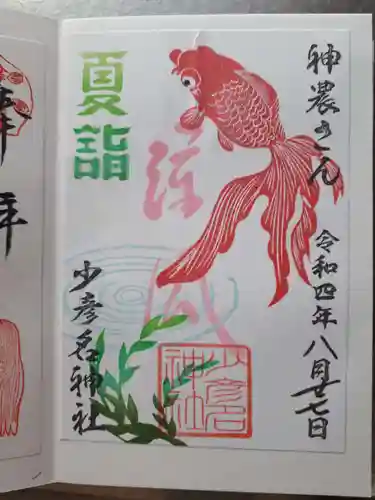 神農さん
令和四年八月廿七日
夏詣
涼風
少彦名神社
少彦名
神社
奉
年